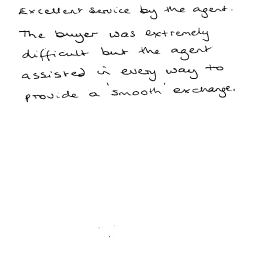 Excellent service by the agent.
The buyer was extremely
difficult but the agent
assisted in every way to
provide a 'smooth' exchange.